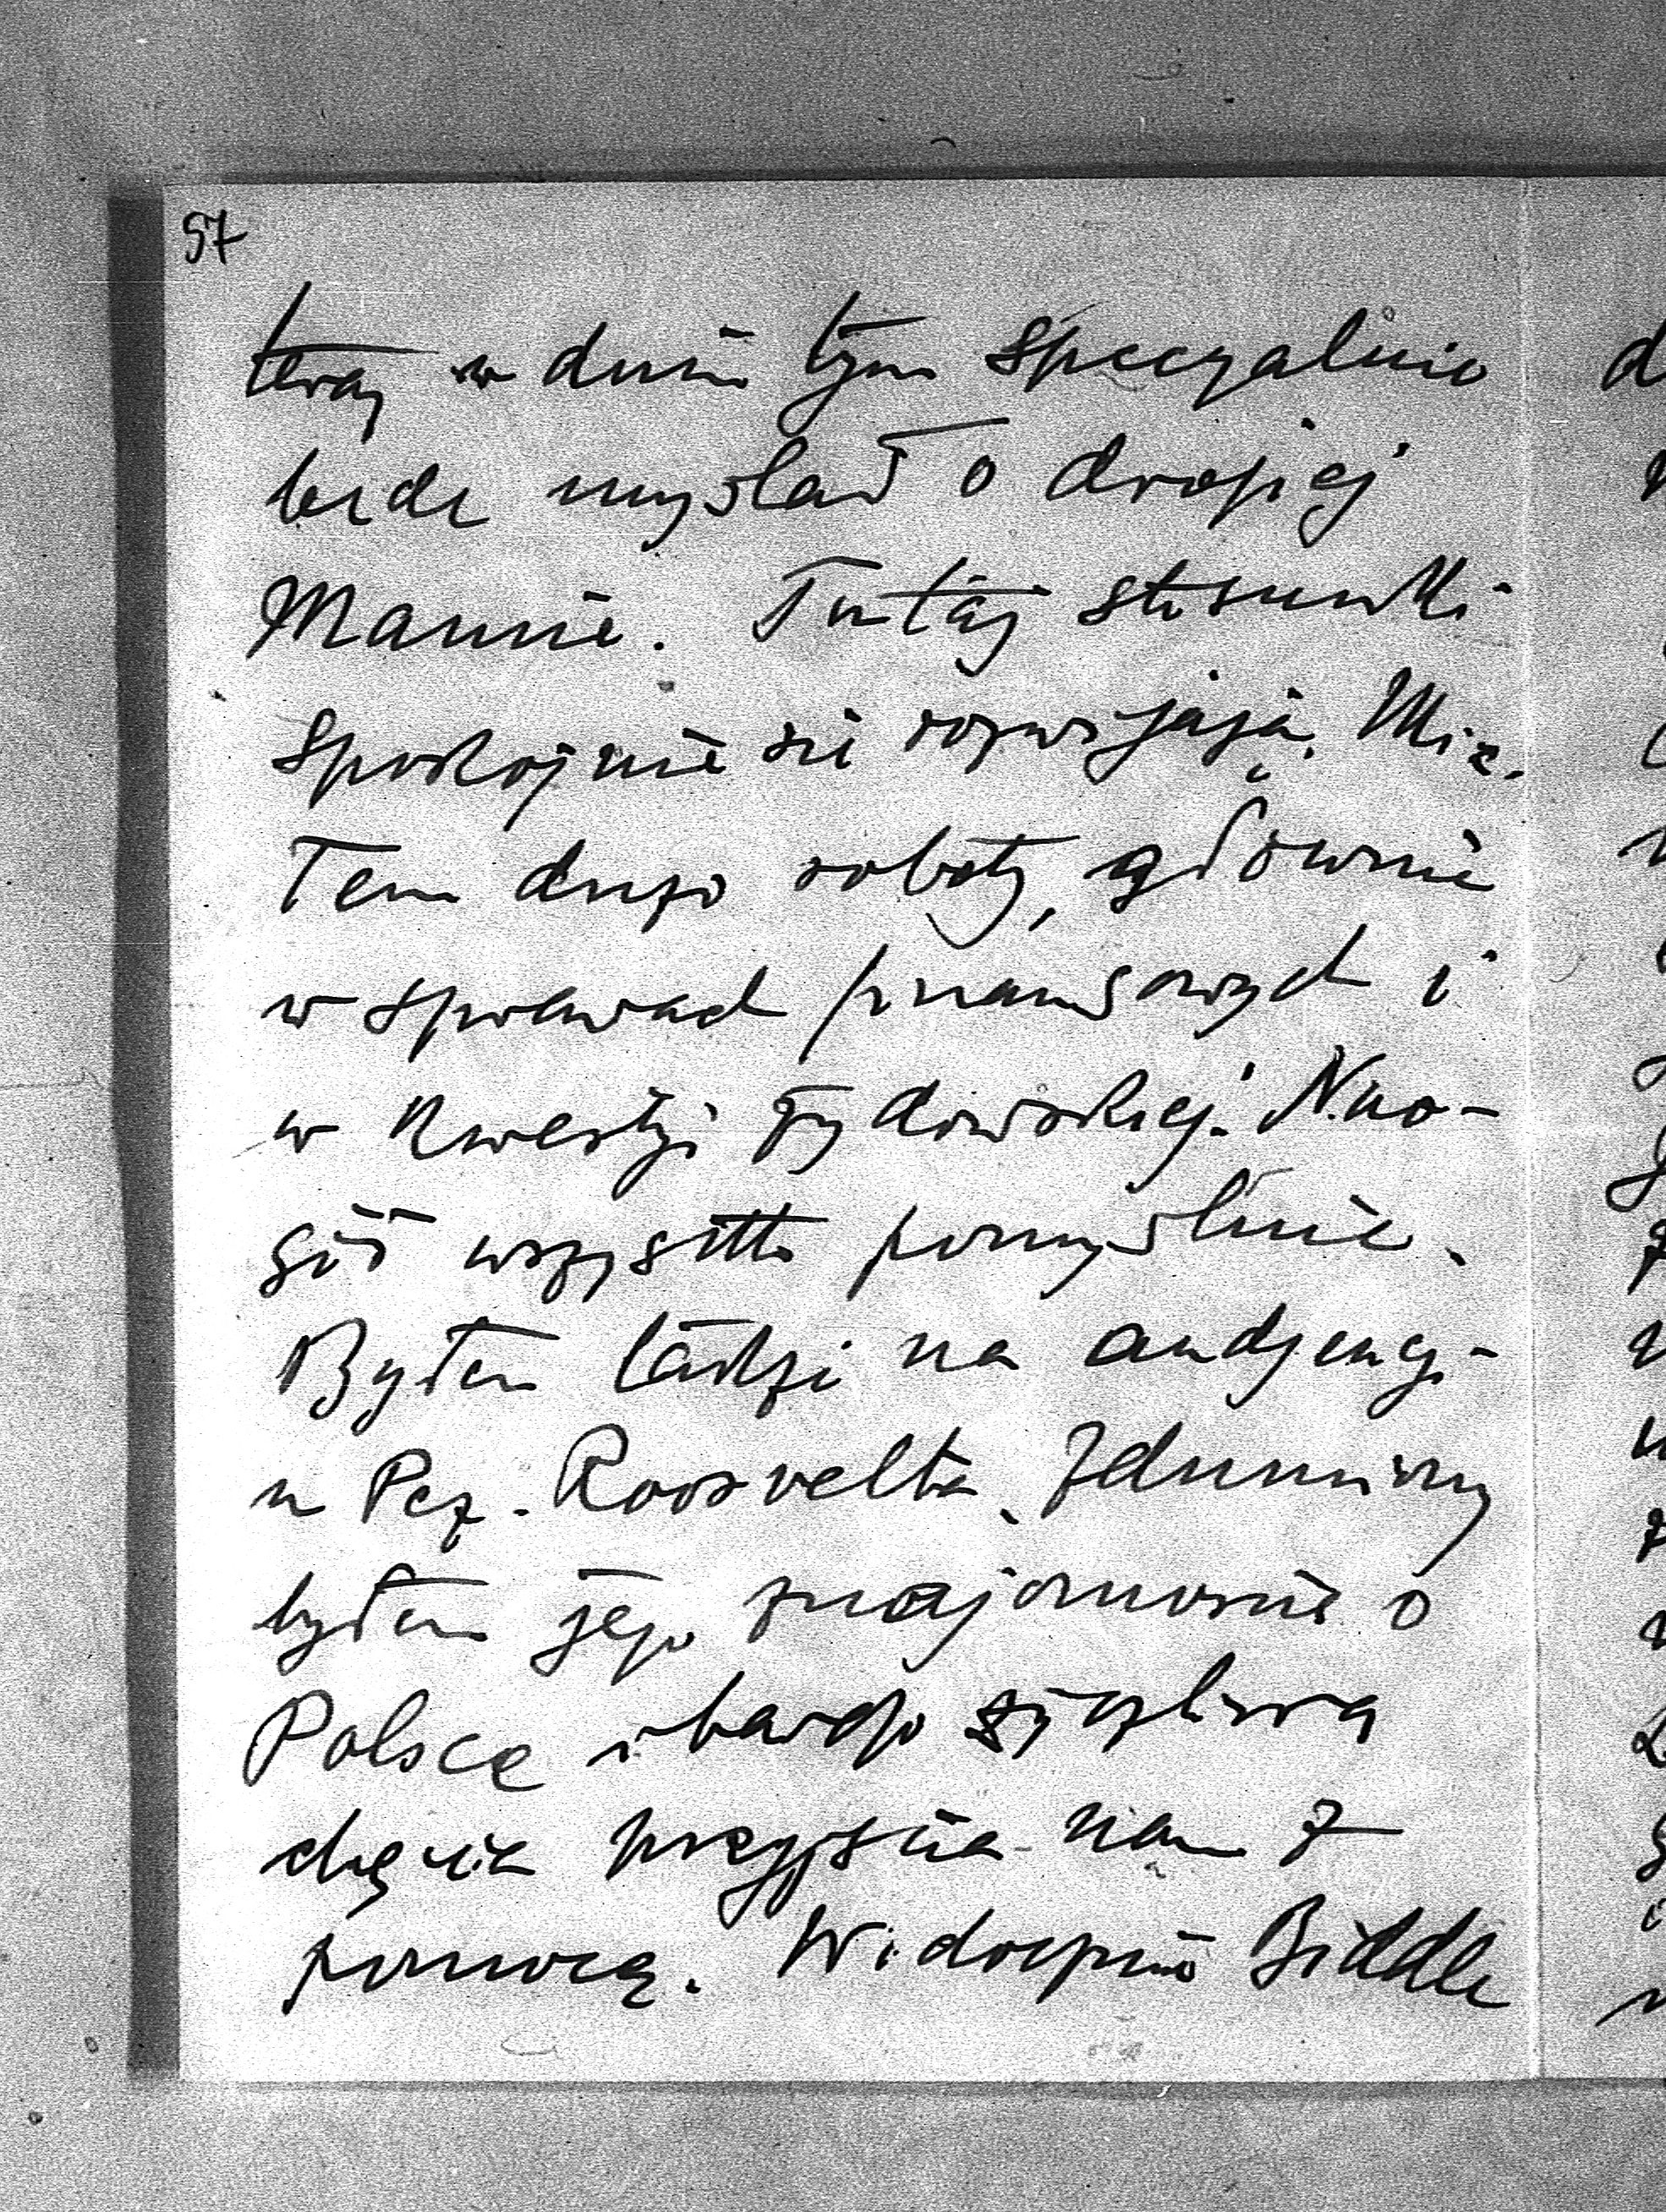 57
teraz w dniu tym specyalnie
bede myslał o drogiej
Mamie. Tutaj stosunki
spokojnie się rozwijają. Mia-
łem dużo roboty, głównie
w sprawach finansowych i
w kwestji żydowskiej. Na o-
gół wszystko pomyślnie.
Byłem także na audjencji
u Prez. Roosvelta. Zdumiony
byłem jego znajomoscią o
Polsce i bardzo życzliwą
chęcią przyjścia nam z
pomocą. Widocznie Biddle